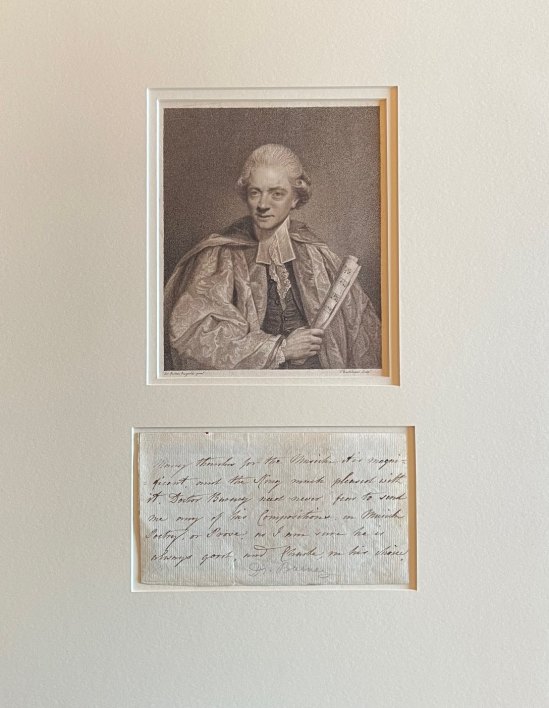 Sir Joshua Reynolds pinx.t
F. Bartolozzi sculp.t
Many thanks for the Musick it is magni-
ficent and the King much pleased with
it. Doctor Burney need never fear to send
me any of his Compositions in Musick
Poetry, or Prose, as I am sure he is
always good, and Chaste in his choice.
Dr. Burney